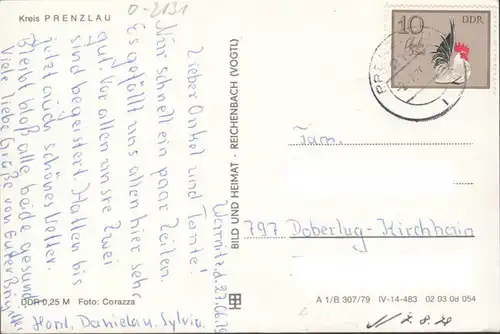 Kreis PRENZLAU
O-2131
Warnitz d. 27.06.79
Lieber Onkel und Tante!
Nur schnell ein paar Zeilen.
Es gefällt uns allen hier sehr
gut. Vor allen unsre zwei
sind begeistert. Hatten bis
jetzt auch schönes Wetter.
Bleibt bloß alle beide gesund.
Viele liebe Grüße von Eurer
Horst, Daniela u. Sylvia.
DDR 0,25 M Foto: Corazza
BILD UND HEIMAT · REICHENBACH (VOGTL)
10
DDR
PRENZLAU
Fam.
797 Doberlug-Kirchhain
A 1/B 307/79 IV-14-483 02 03 0d 054